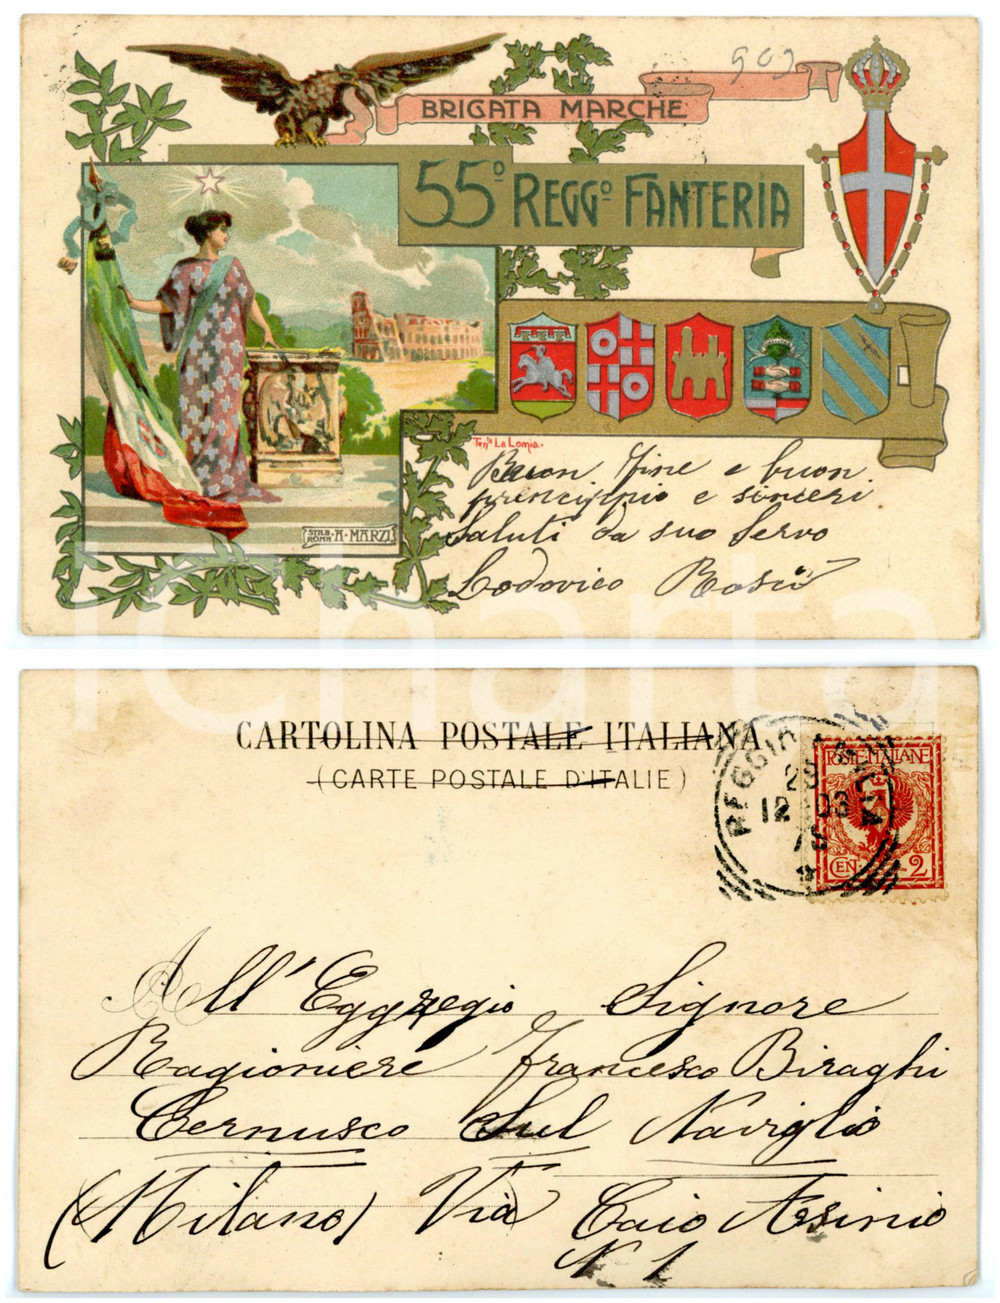 903
BRIGATA MARCHE
55º REGGº FANTERIA
Ten.te La Lomia.
Buon fine e buon
princippio e sinceri
Saluti da suo Servo
Lodovico Rosio
STAB. A. MARZI
ROMA
CARTOLINA POSTALE ITALIANA
(CARTE POSTALE D'ITALIE)
REGGIO
POSTE ITALIANE
29
12 03
CENT. 2
All'Eggregio Signore
Ragioniere Francesco Biraghi
Cernusco Sul Naviglio
(Milano) Via Caio Asinio
N 1
iCharta